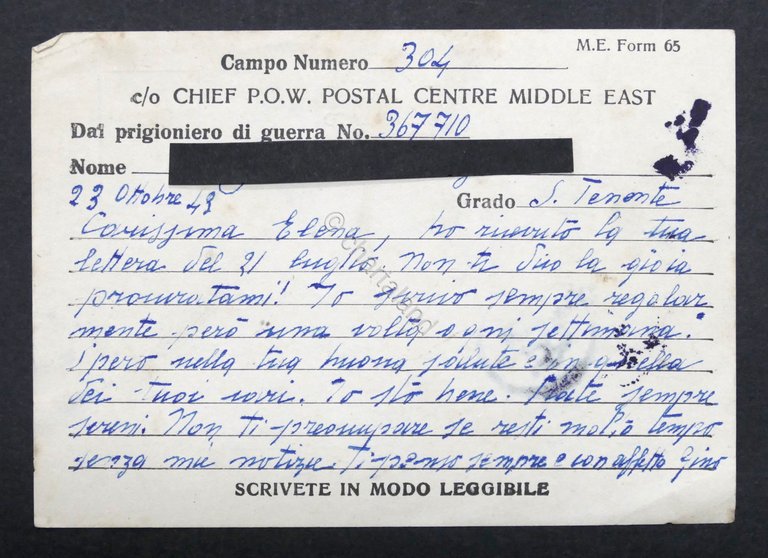 M.E. Form 65
Campo Numero 304
c/o CHIEF P.O.W. POSTAL CENTRE MIDDLE EAST
Dal prigioniero di guerra No. 367710
Nome
23 Ottobre 43 Grado S. Tenente
Carissima Elena, ho ricevuto la tua
lettera del 21 luglio. Non ti dico la gioia
procuratami! Io scrivo sempre regolar
mente però una volta ogni settimana.
Spero nella tua buona salute e in quella
dei tuoi cari. Io sto bene. Siate sempre
sereni. Non ti preoccupare se resti molto tempo
senza mie notizie. Ti penso sempre e con affetto Gino
SCRIVETE IN MODO LEGGIBILE
© Chartaland